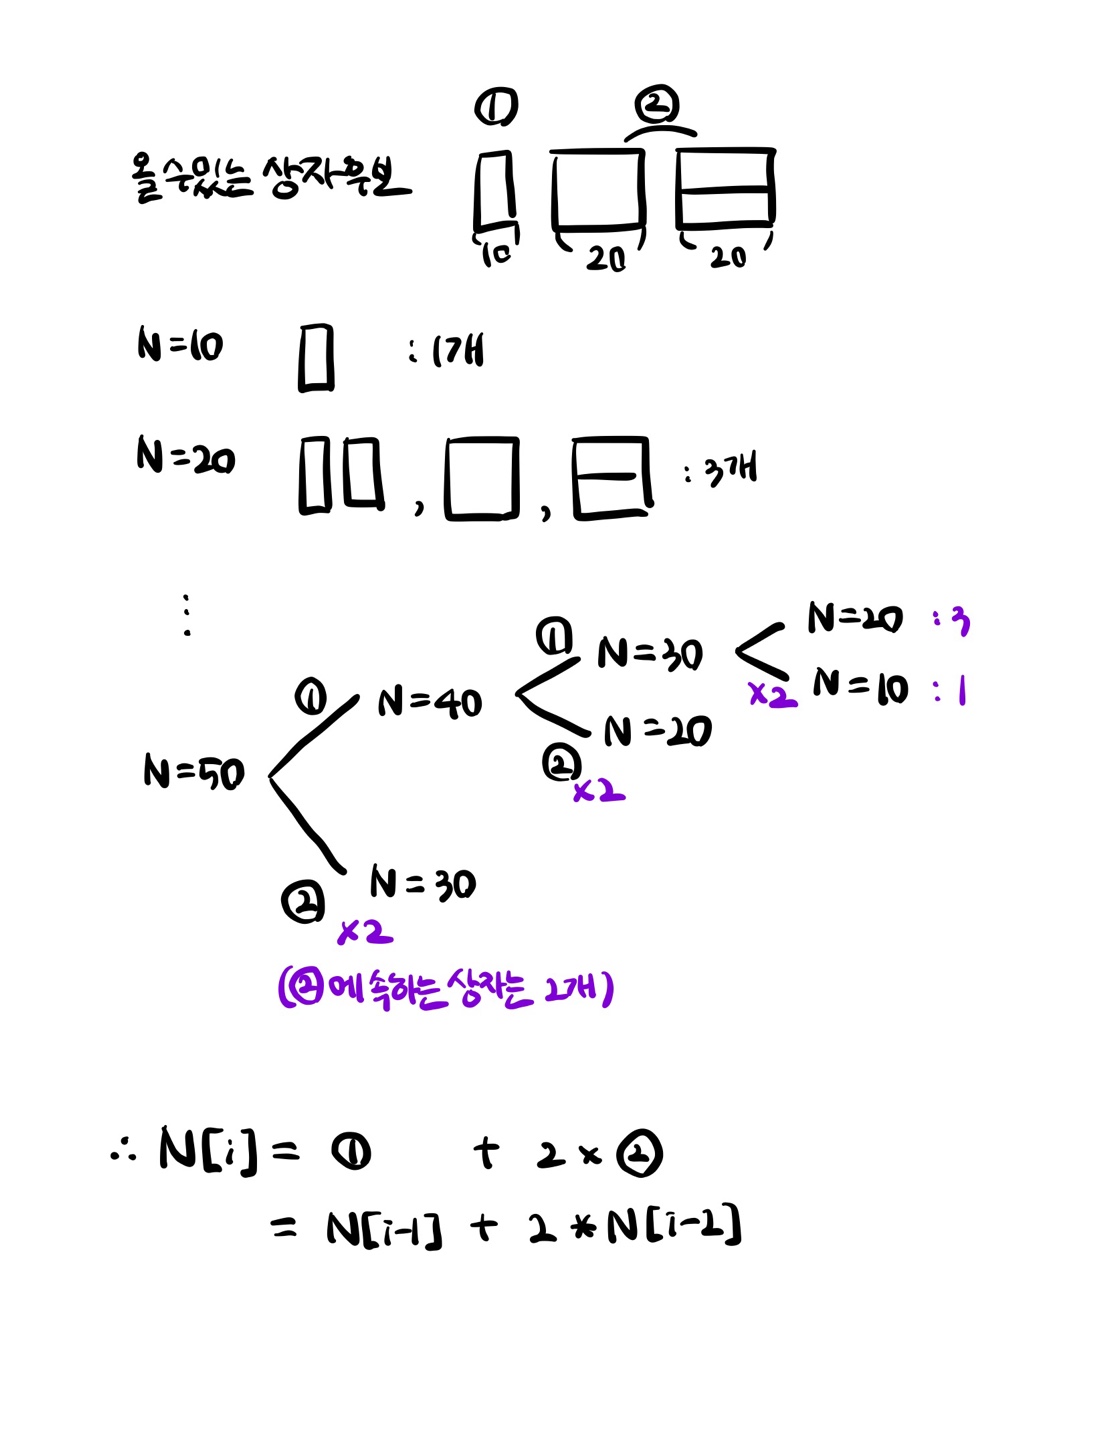 ① ②
올 수 있는 상자 후보
10 20 20
N=10 : 1개
N=20 , , : 3개
⋮
① N=40 ① N=30 N=20 : 3
x2 N=10 : 1
N=20
② x2
N=50
② N=30
x2
(②에 속하는 상자는 2개)
∴ N[i] = ① + 2 × ②
= N[i-1] + 2 * N[i-2]